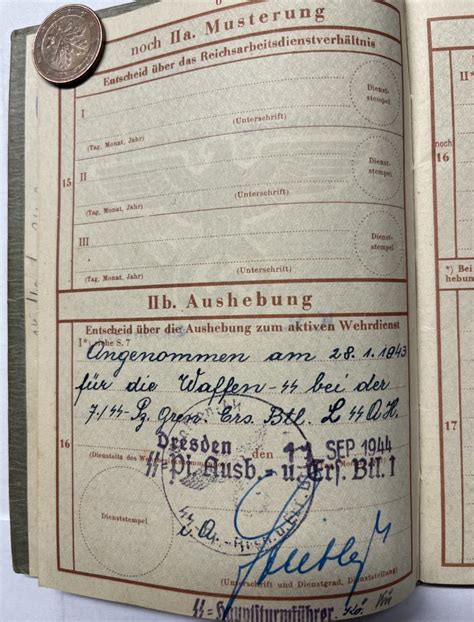 noch IIa. Musterung
Entscheid über das Reichsarbeitsdienstverhältnis
I
(Tag, Monat, Jahr) (Unterschrift)
Dienst-
stempel
15 II
(Tag, Monat, Jahr) (Unterschrift)
Dienst-
stempel
III
(Tag, Monat, Jahr) (Unterschrift)
Dienst-
stempel
IIb. Aushebung
Entscheid über die Aushebung zum aktiven Wehrdienst
I*) siehe S. 7
Angenommen am 28.1.1943
für die Waffen-SS bei der
7./SS-Pz. Gren. Ers. Btl. LSSAH.
16
Dresden den 11. SEP 1944
SS-Pi. Ausb.- u. Ers. Btl. 1
Dienststempel
(Unterschrift und Dienstgrad, Dienststellung)
SS-Hauptsturmführer
noch
16
*) Bei